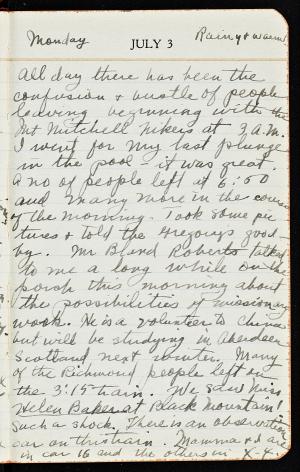 Monday
JULY 3
Rainy & warm!
All day there has been the
confusion & bustle of people
leaving beginning with the
Mt Mitchell hikers at 3 A.M.
I went for my last plunge
in the pool - it was great.
A no of people left at 6:50
and many more in the course
of the morning. Took some pic
tures & told the Gregorys good-
by. Mr Bland Roberts talked
to me a long while on the
porch this morning about
the possibilities of missionary
work. He is a volunteer to China
but will be studying in Aberdeen
Scotland next winter. Many
of the Richmond people left on
the 3:15 train. We saw Miss
Helen Baker at Black Mountain!
Such a shock. There is an observation
car on this train. Mamma & I are
in car 16 and the others in X-4.